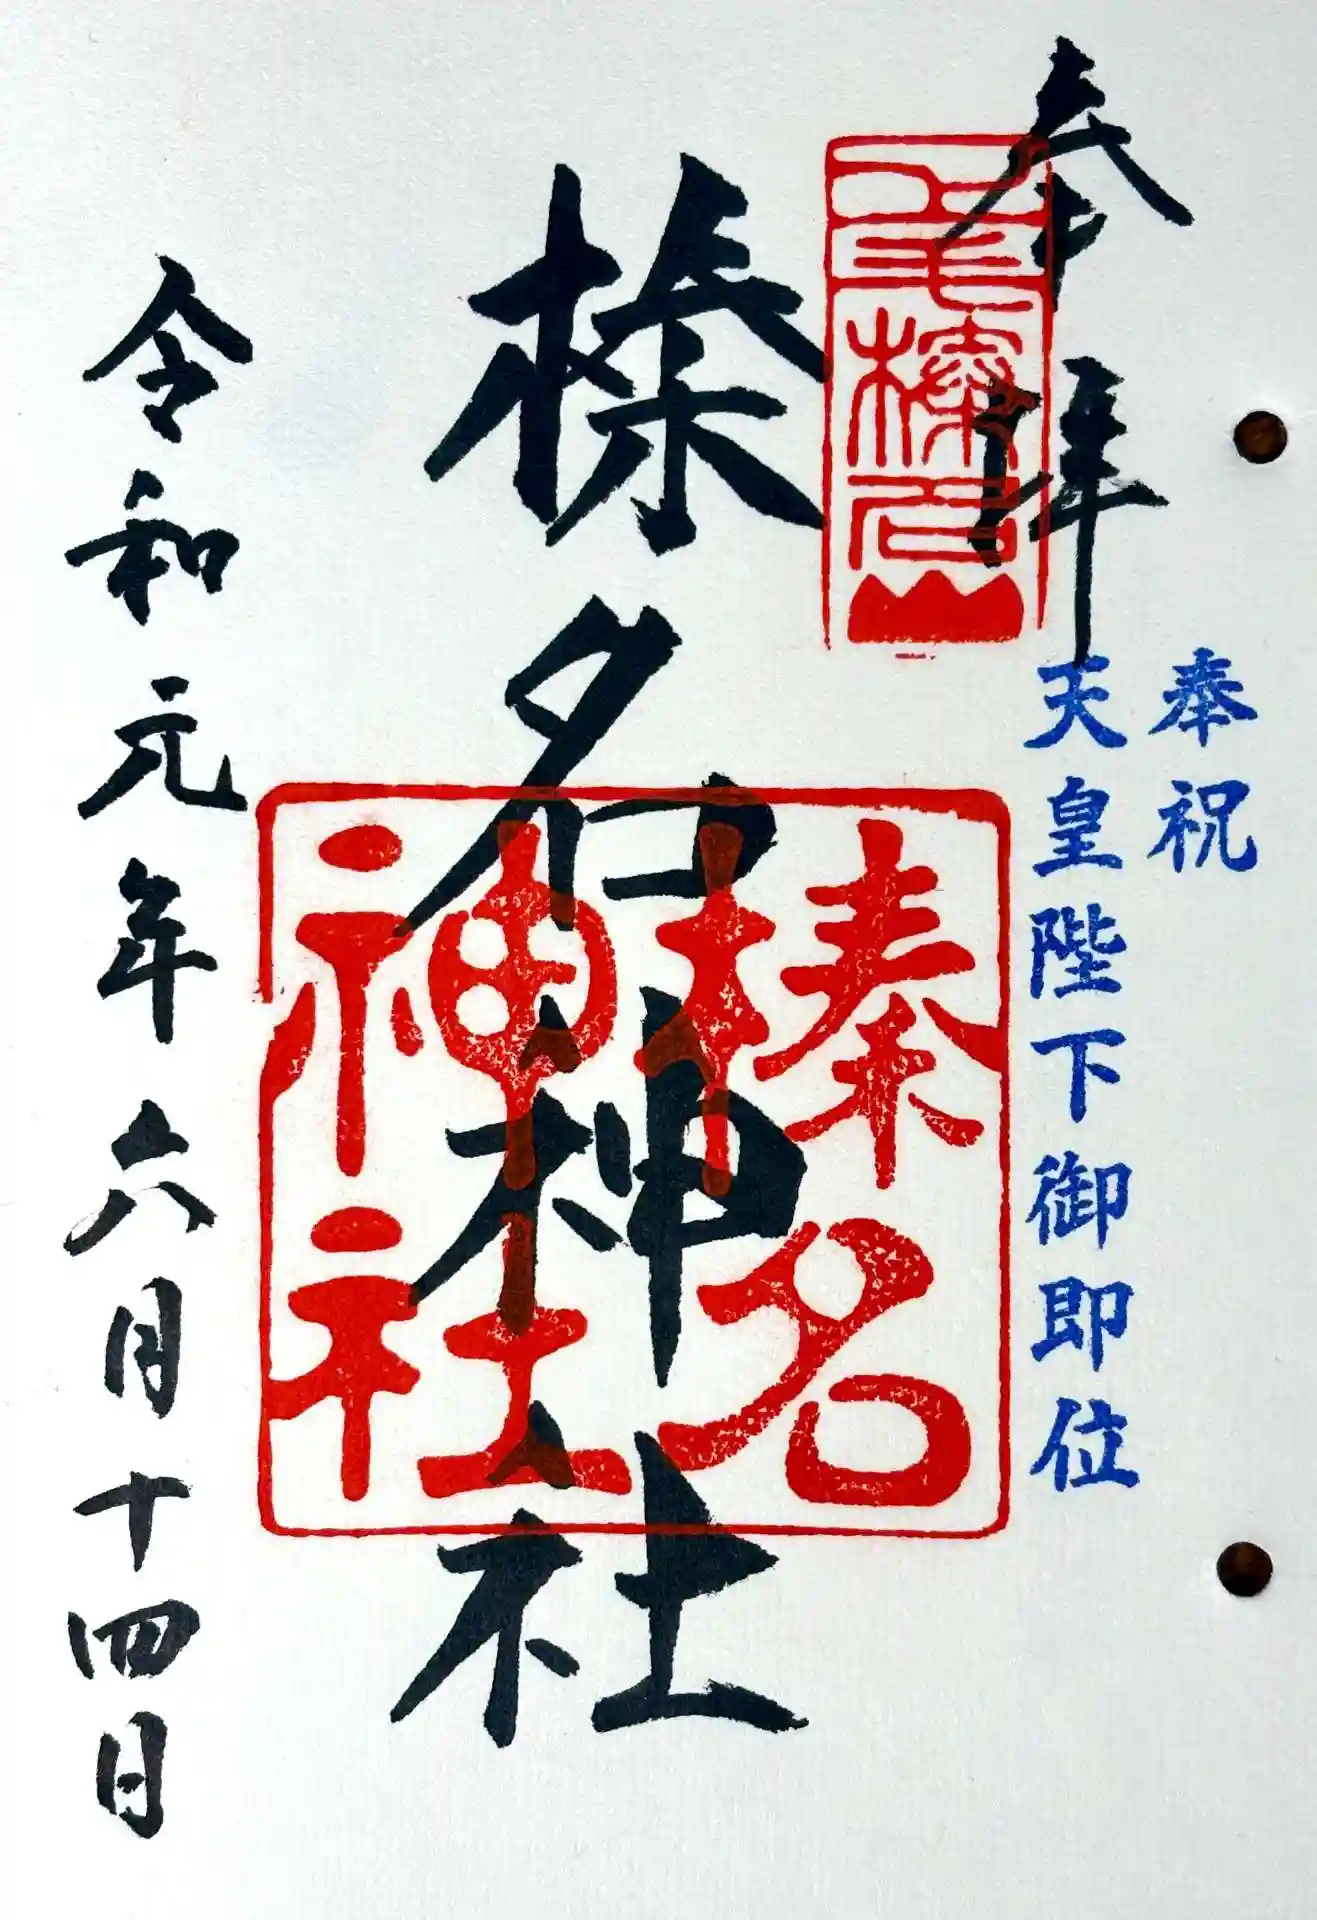 奉拝
奉祝
天皇陛下御即位
上毛榛名山
榛名神社
榛名
神社
令和元年六月十四日